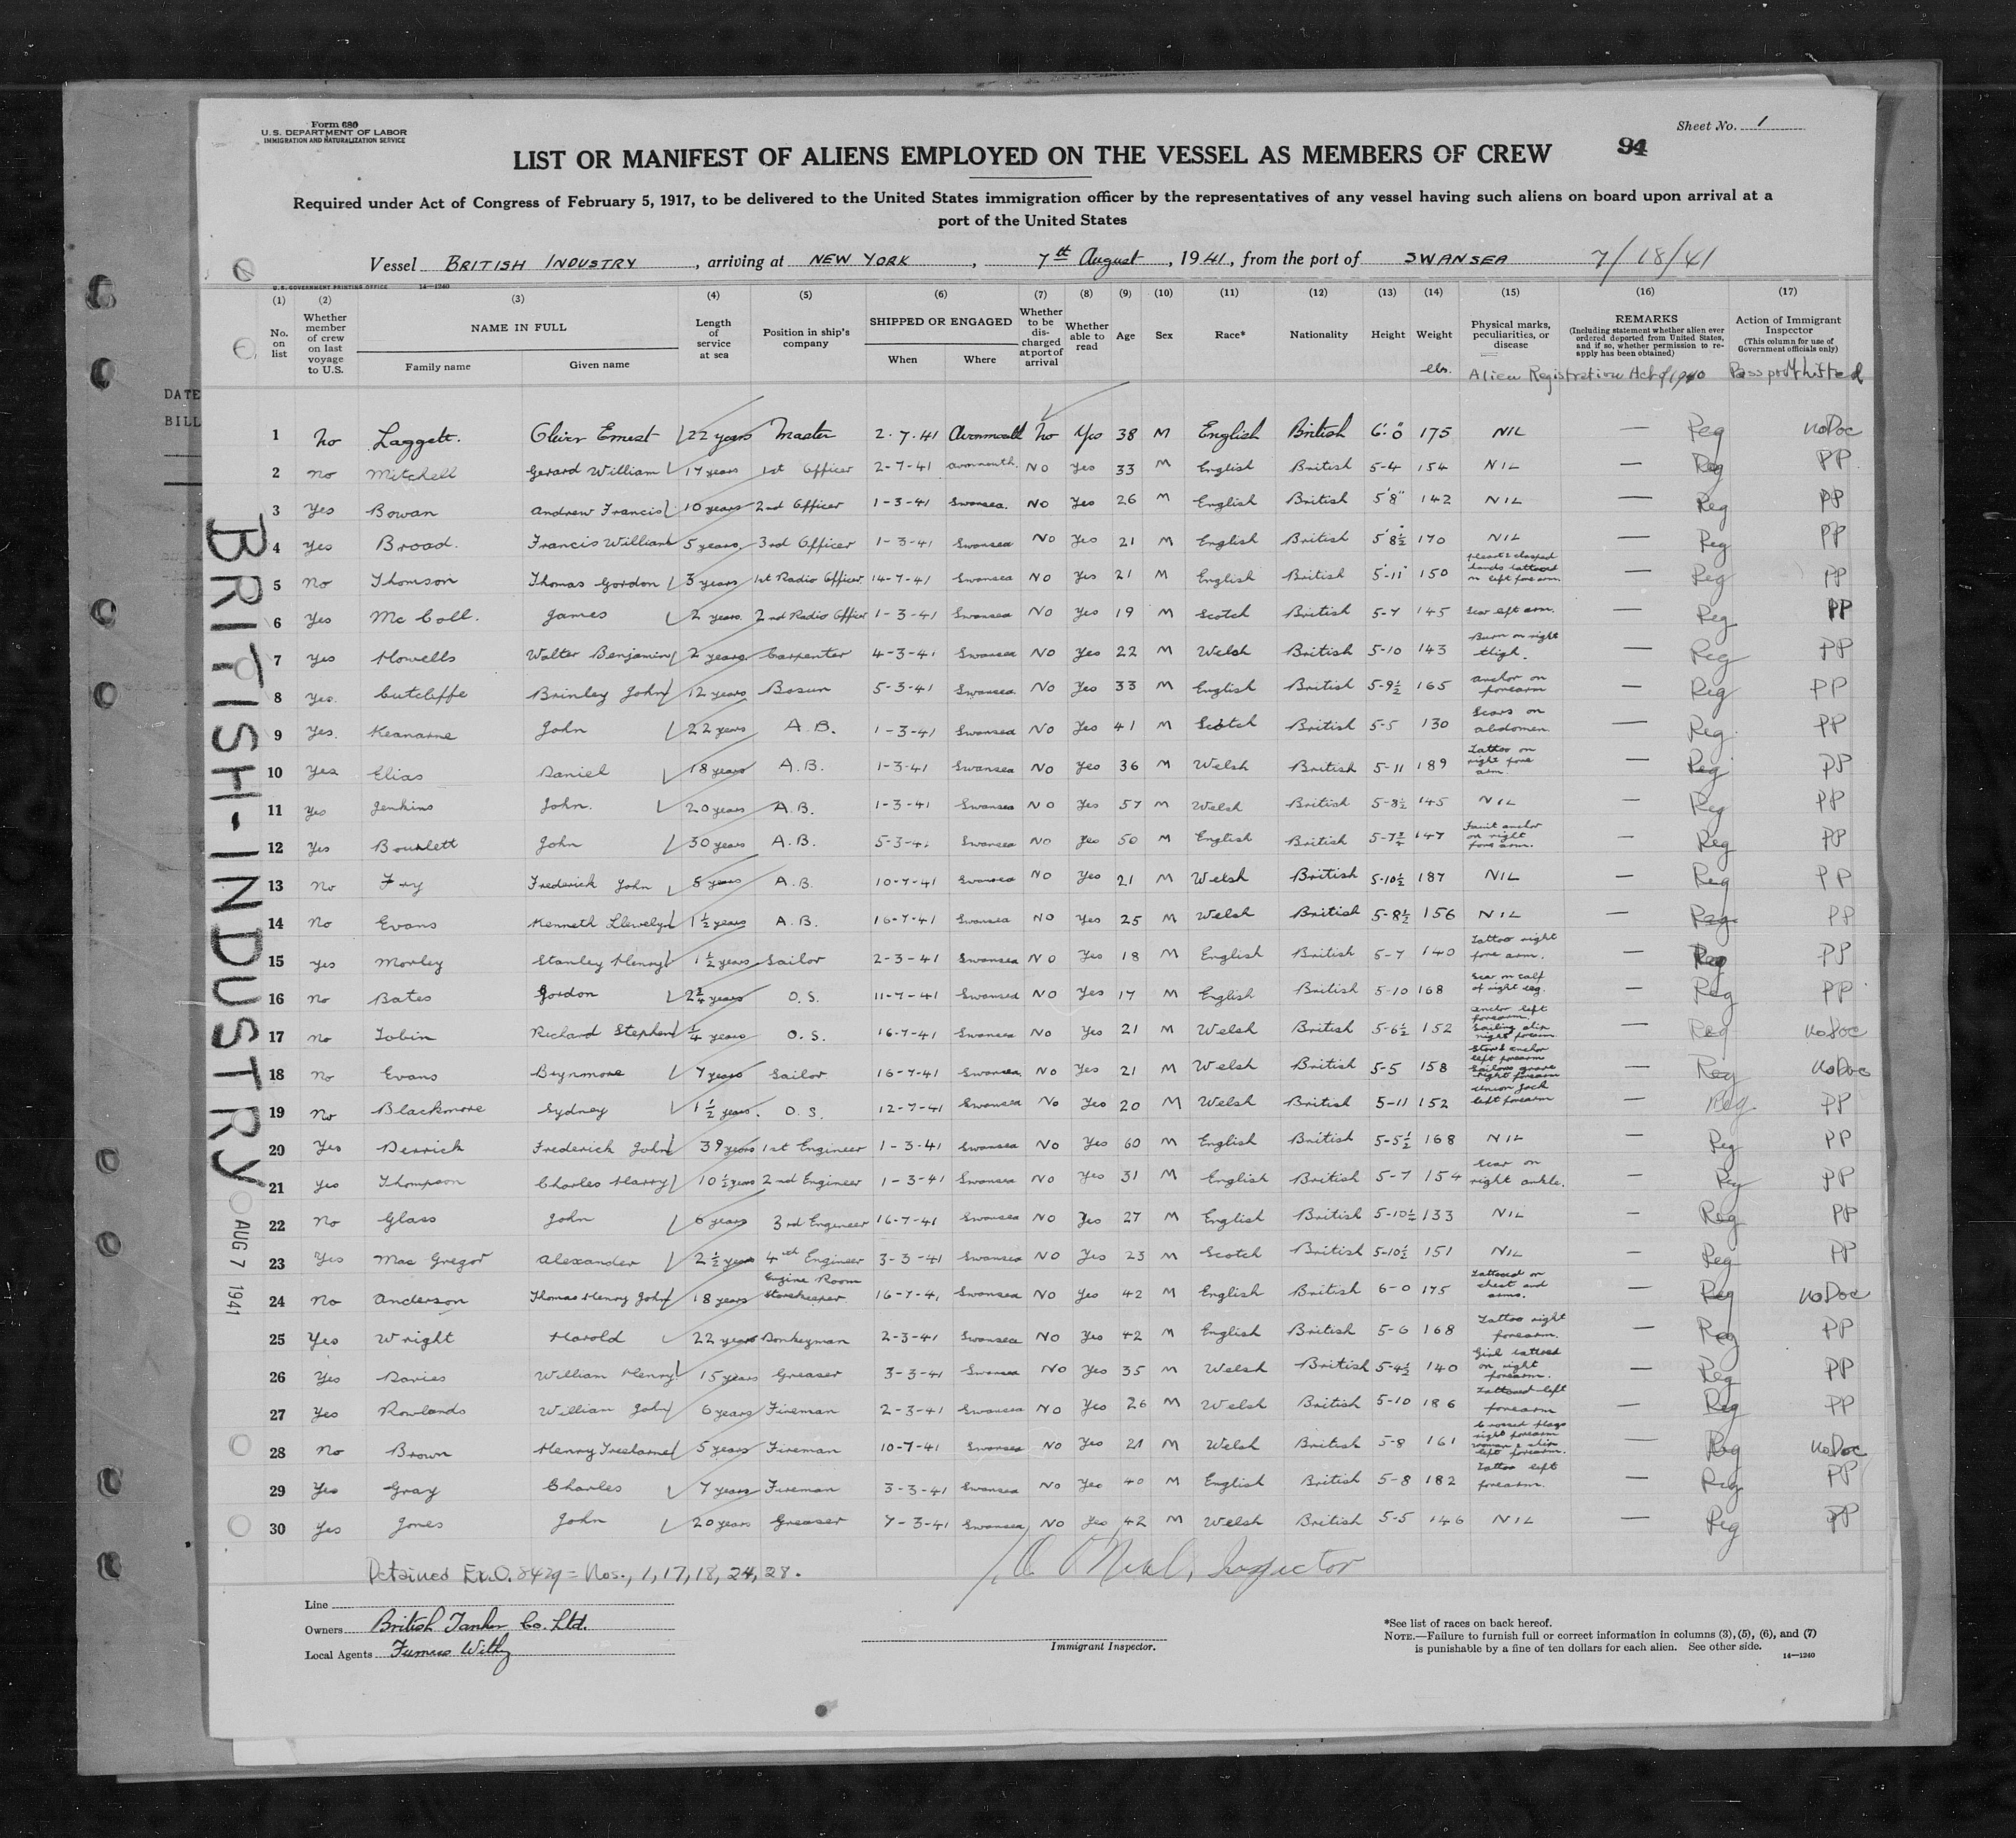 Form 680
U.S. DEPARTMENT OF LABOR
IMMIGRATION AND NATURALIZATION SERVICE
Sheet No. 1
94
LIST OR MANIFEST OF ALIENS EMPLOYED ON THE VESSEL AS MEMBERS OF CREW
Required under Act of Congress of February 5, 1917, to be delivered to the United States immigration officer by the representatives of any vessel having such aliens on board upon arrival at a
port of the United States
Vessel BRITISH INDUSTRY, arriving at NEW YORK, 7th August, 1941, from the port of SWANSEA 7/18/41
U.S. GOVERNMENT PRINTING OFFICE 14—1240
(1) No. on list
(2) Whether member of crew on last voyage to U.S.
(3) NAME IN FULL Family name Given name
(4) Length of service at sea
(5) Position in ship's company
(6) SHIPPED OR ENGAGED When Where
(7) Whether to be discharged at port of arrival
(8) Whether able to read
(9) Age
(10) Sex
(11) Race*
(12) Nationality
(13) Height
(14) Weight lbs.
(15) Physical marks, peculiarities, or disease
(16) REMARKS (Including statement whether alien ever ordered deported from United States, and if so, whether permission to reapply has been obtained)
(17) Action of Immigrant Inspector (This column for use of Government officials only)
Alien Registration Act of 1940 Passport
DATE
BILL
1 No Laggett. Oliver Ernest 22 years Master 2.7.41 Avonmouth No Yes 38 M English British 6'.0" 175 NIL — Reg No Doc
2 No Mitchell Gerard William 17 years 1st Officer 2-7-41 Avonmouth. NO Yes 33 M English British 5-4 154 NIL — Reg PP
3 Yes Bowan Andrew Francis 10 years 2nd Officer 1-3-41 Swansea. NO Yes 26 M English British 5'8" 142 NIL — Reg PP
4 Yes Broad. Francis William 5 years. 3rd Officer 1-3-41 Swansea NO Yes 21 M English British 5'8½" 170 NIL — Reg PP
5 No Thomson Thomas Gordon 3 years 1st Radio Officer 14-7-41 Swansea NO Yes 21 M English British 5'-11" 150 Heart & clasped hands tattooed on left fore arm. — Reg PP
6 Yes Mc Coll. James 2 years. 2nd Radio Officer 1-3-41 Swansea NO Yes 19 M Scotch British 5-7 145 Scar left arm. — Reg PP
7 Yes Howells Walter Benjamin 2 years. Carpenter 4-3-41 Swansea NO Yes 22 M Welsh British 5-10 143 Burn on right thigh. — Reg PP
8 Yes. Cutcliffe Brinley John 12 years Bosun 5-3-41 Swansea NO Yes 33 M English British 5-9½ 165 anchor on forearm — Reg PP
9 Yes. Keanarne John 22 years A.B. 1-3-41 Swansea NO Yes 41 M Scotch British 5-5 130 Scars on abdomen. — Reg. PP
10 Yes Elias Daniel 18 years A.B. 1-3-41 Swansea NO Yes 36 M Welsh British 5-11 189 Tattoo on right fore arm. — Reg PP
11 Yes Jenkins John. 20 years A.B. 1-3-41 Swansea NO Yes 57 M Welsh British 5-8½ 145 NIL — Reg PP
12 Yes John 30 years A.B. 5-3-41 Swansea NO Yes 50 M English British 5-7½ 147 Faint anchor on right fore arm. — Reg PP
13 No Fry Frederick John 5 years A.B. 10-7-41 Swansea NO Yes 21 M Welsh British 5-10½ 187 NIL — Reg PP
14 No Evans Kenneth Llewelyn 1½ years A.B. 16-7-41 Swansea NO Yes 25 M Welsh British 5-8½ 156 NIL — Reg PP
15 Yes Morley Stanley Henry 1½ years Sailor 2-3-41 Swansea NO Yes 18 M English British 5-7 140 Tattoo right fore arm. — Reg PP
16 No Bates Gordon 2¾ years O.S. 11-7-41 Swansea NO Yes 17 M English British 5-10 168 Scar on calf of right leg. — Reg PP
17 No Tobin Richard Stephen ¼ years O.S. 16-7-41 Swansea NO Yes 21 M Welsh British 5-6½ 152 anchor left forearm. Sailing ship right forearm — Reg No Doc
18 No Evans Brynmore 7 years Sailor 16-7-41 Swansea NO Yes 21 M Welsh British 5-5 158 anchor left forearm Sailors grave right forearm — Reg No Doc
19 No Blackmore Sydney 1½ years. O.S. 12-7-41 Swansea No Yes 20 M Welsh British 5-11 152 Union Jack left forearm — Reg PP
20 Yes Derrick Frederick John 39 years 1st Engineer 1-3-41 Swansea NO Yes 60 M English British 5-5½ 168 NIL — Reg PP
21 Yes Thompson Charles Harry 10½ years 2nd Engineer 1-3-41 Swansea NO Yes 31 M English British 5-7 154 Scar on right ankle. — Reg PP
22 No Glass John 6 years 3rd Engineer 16-7-41 Swansea NO Yes 27 M English British 5-10½ 133 NIL — Reg PP
23 Yes Mac Gregor Alexander 2½ years 4th Engineer 3-3-41 Swansea NO Yes 23 M Scotch British 5-10½ 151 NIL — Reg PP
24 No Anderson Thomas Henry John 18 years Engine Room Storekeeper 16-7-4, Swansea NO Yes 42 M English British 6-0 175 Tattooed on chest and arms. — Reg No Doc
25 Yes Wright Harold 22 years Donkeyman 2-3-41 Swansea NO Yes 42 M English British 5-6 168 Tattoo right forearm. — Reg PP
26 Yes Davies William Henry 15 years Greaser 3-3-41 Swansea NO Yes 35 M Welsh British 5-4½ 140 Girl tattooed on right forearm. — Reg PP
27 Yes Rowlands William John 6 years Fireman 2-3-41 Swansea NO Yes 26 M Welsh British 5-10 186 Tattooed left forearm — Reg PP
28 No Brown Henry Treeharne 5 years Fireman 10-7-41 Swansea NO Yes 21 M Welsh British 5-8 161 Crossed flags right forearm woman & ship left forearm. — Reg No Doc
29 Yes Gray Charles 7 years Fireman 3-3-41 Swansea NO Yes 40 M English British 5-8 182 Tattoo left forearm. — Reg PP
30 Yes Jones John 20 years Greaser 7-3-41 Swansea NO Yes 42 M Welsh British 5-5 146 NIL — Reg PP
BRITISH-INDUSTRY
AUG 7 1941
Detained Ex.O. 8429 = Nos., 1, 17, 18, 24, 28.
O'Neal, Inspector
Line
Owners British Tanker Co. Ltd.
Local Agents Furness Withy
Immigrant Inspector.
*See list of races on back hereof.
NOTE.—Failure to furnish full or correct information in columns (3), (5), (6), and (7)
is punishable by a fine of ten dollars for each alien. See other side.
14—1240